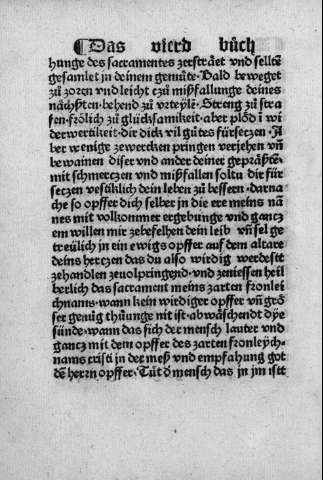 ¶ Das vierd bůch
hunge des sacramentes zerſtráet vnd ſelltē
geſamlet in deinem gemůte · Bald beweget
zů zoren vnd leicht czů miſzfallunge deines
náchſten · behend zů vrteylē · Streng zů ſtra
fen · frólich zů glückſamikeit · aber plód in wi
derwertikeit · dir dick vil gůtes fürſeczen · A
ber wenige zewercken pringen verjehen vñ
bewainen diſer vnd ander deiner gepráſtē ·
mit ſchmerczen vnd miſzfallen ſoltu dir für
ſeczen veſtiklich dein leben zů beſſern · darna
che ſo opffer dich ſelber in die ere meins na
mes mit volkommer ergebunge vnd gancz
em willen mir zebefelhen dein leib vñ ſel ge
treülich in ein ewigs opffer auf dem altare
deins herczen das du alſo wirdig werdeſt
zehandlen zeuolpringend · vnd zenieſſen heil
berlich das ſacrament meins zarten fronlei
chnams · wann kein wirdiger opffer vñ gró
ſer genůg thůunge nit iſt · abwáſchendt dye
ſünde · wann das ſich der menſch lauter vnd
gancz mit dem opffer des zarten fronleych-
nams criſti in der meſz vnd empfahung got
dē herrn opffer · Tůt ð menſch das jn jm iſt